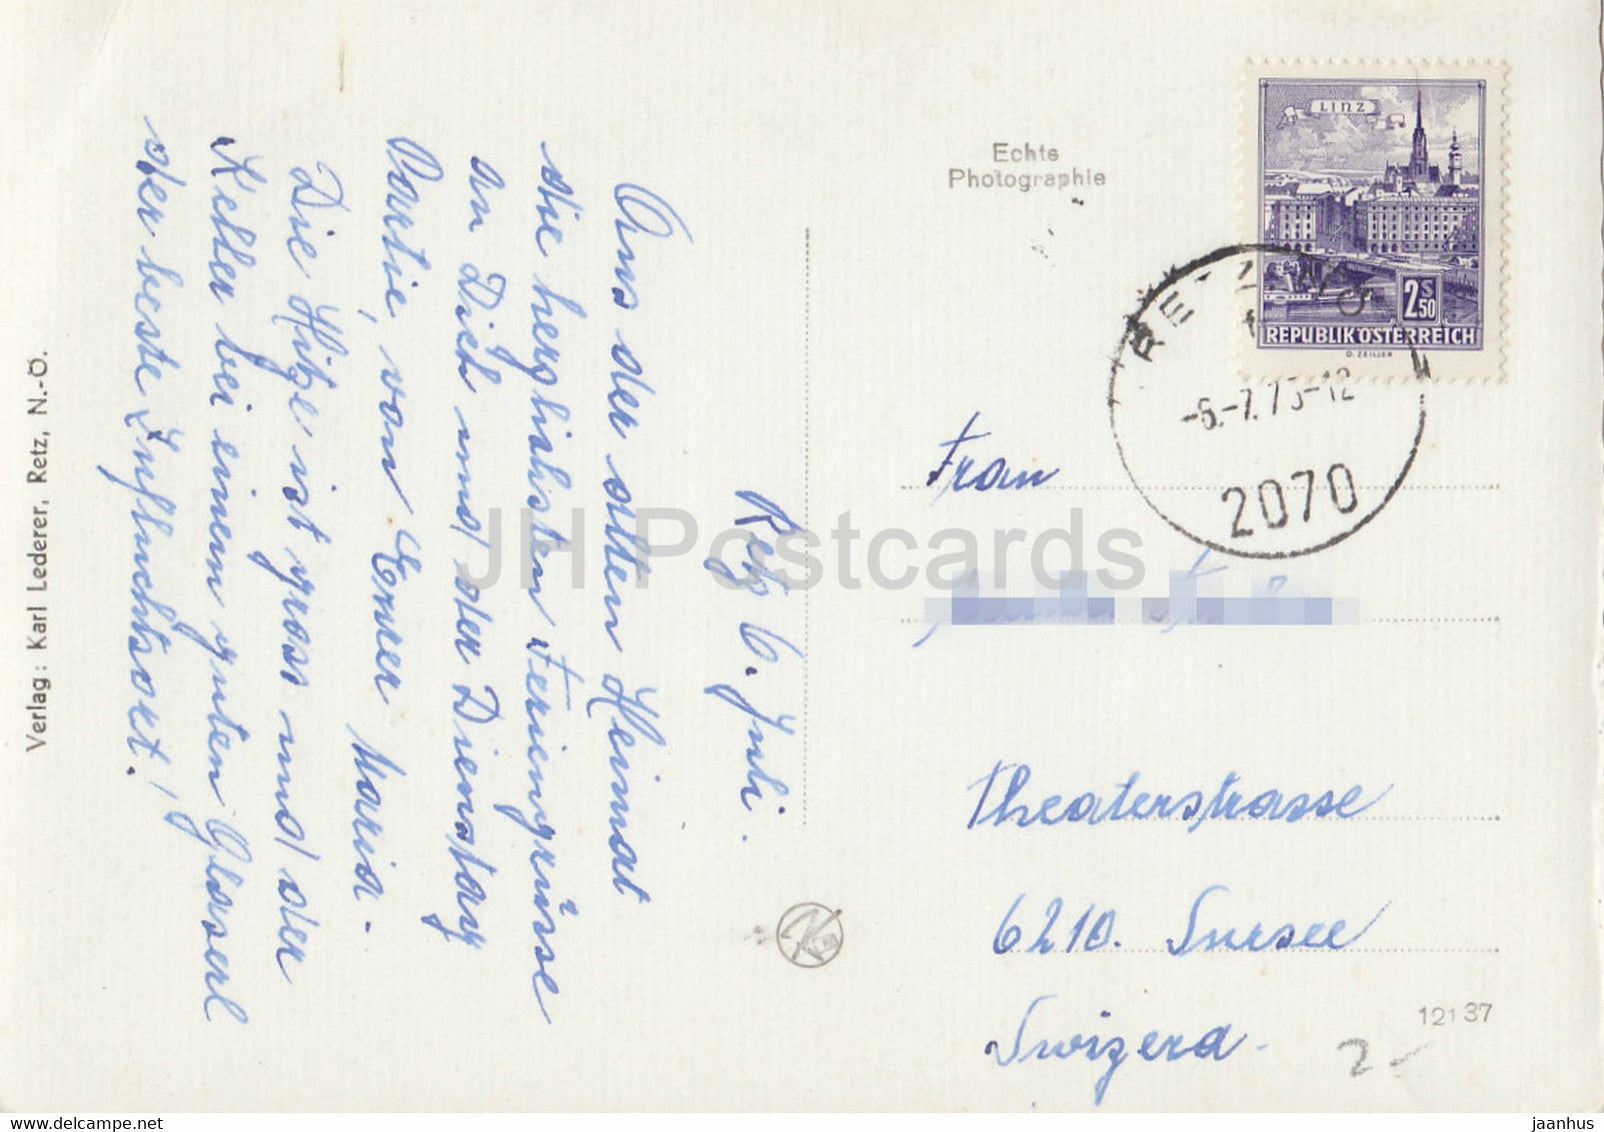 Retz 6. Juli.
Aus der alten Heimat
die herzlichsten Feriengrüsse
an Dich und der Dienstag
Partie, von Eurer Maria.
Die Hitze ist gross und der
Keller bei einem guten Glaserl
der beste Zufluchtsort!
Verlag: Karl Lederer, Retz, N.-Ö.
Echte
Photographie
LINZ
2S50
REPUBLIK ÖSTERREICH
O. ZEILLER
RETZ NÖ
-6.-7.73-12
2070
Frau
Theaterstrasse
6210. Sursee
Swizera.
12137
2-
JH Postcards
hip.com
jaanhus